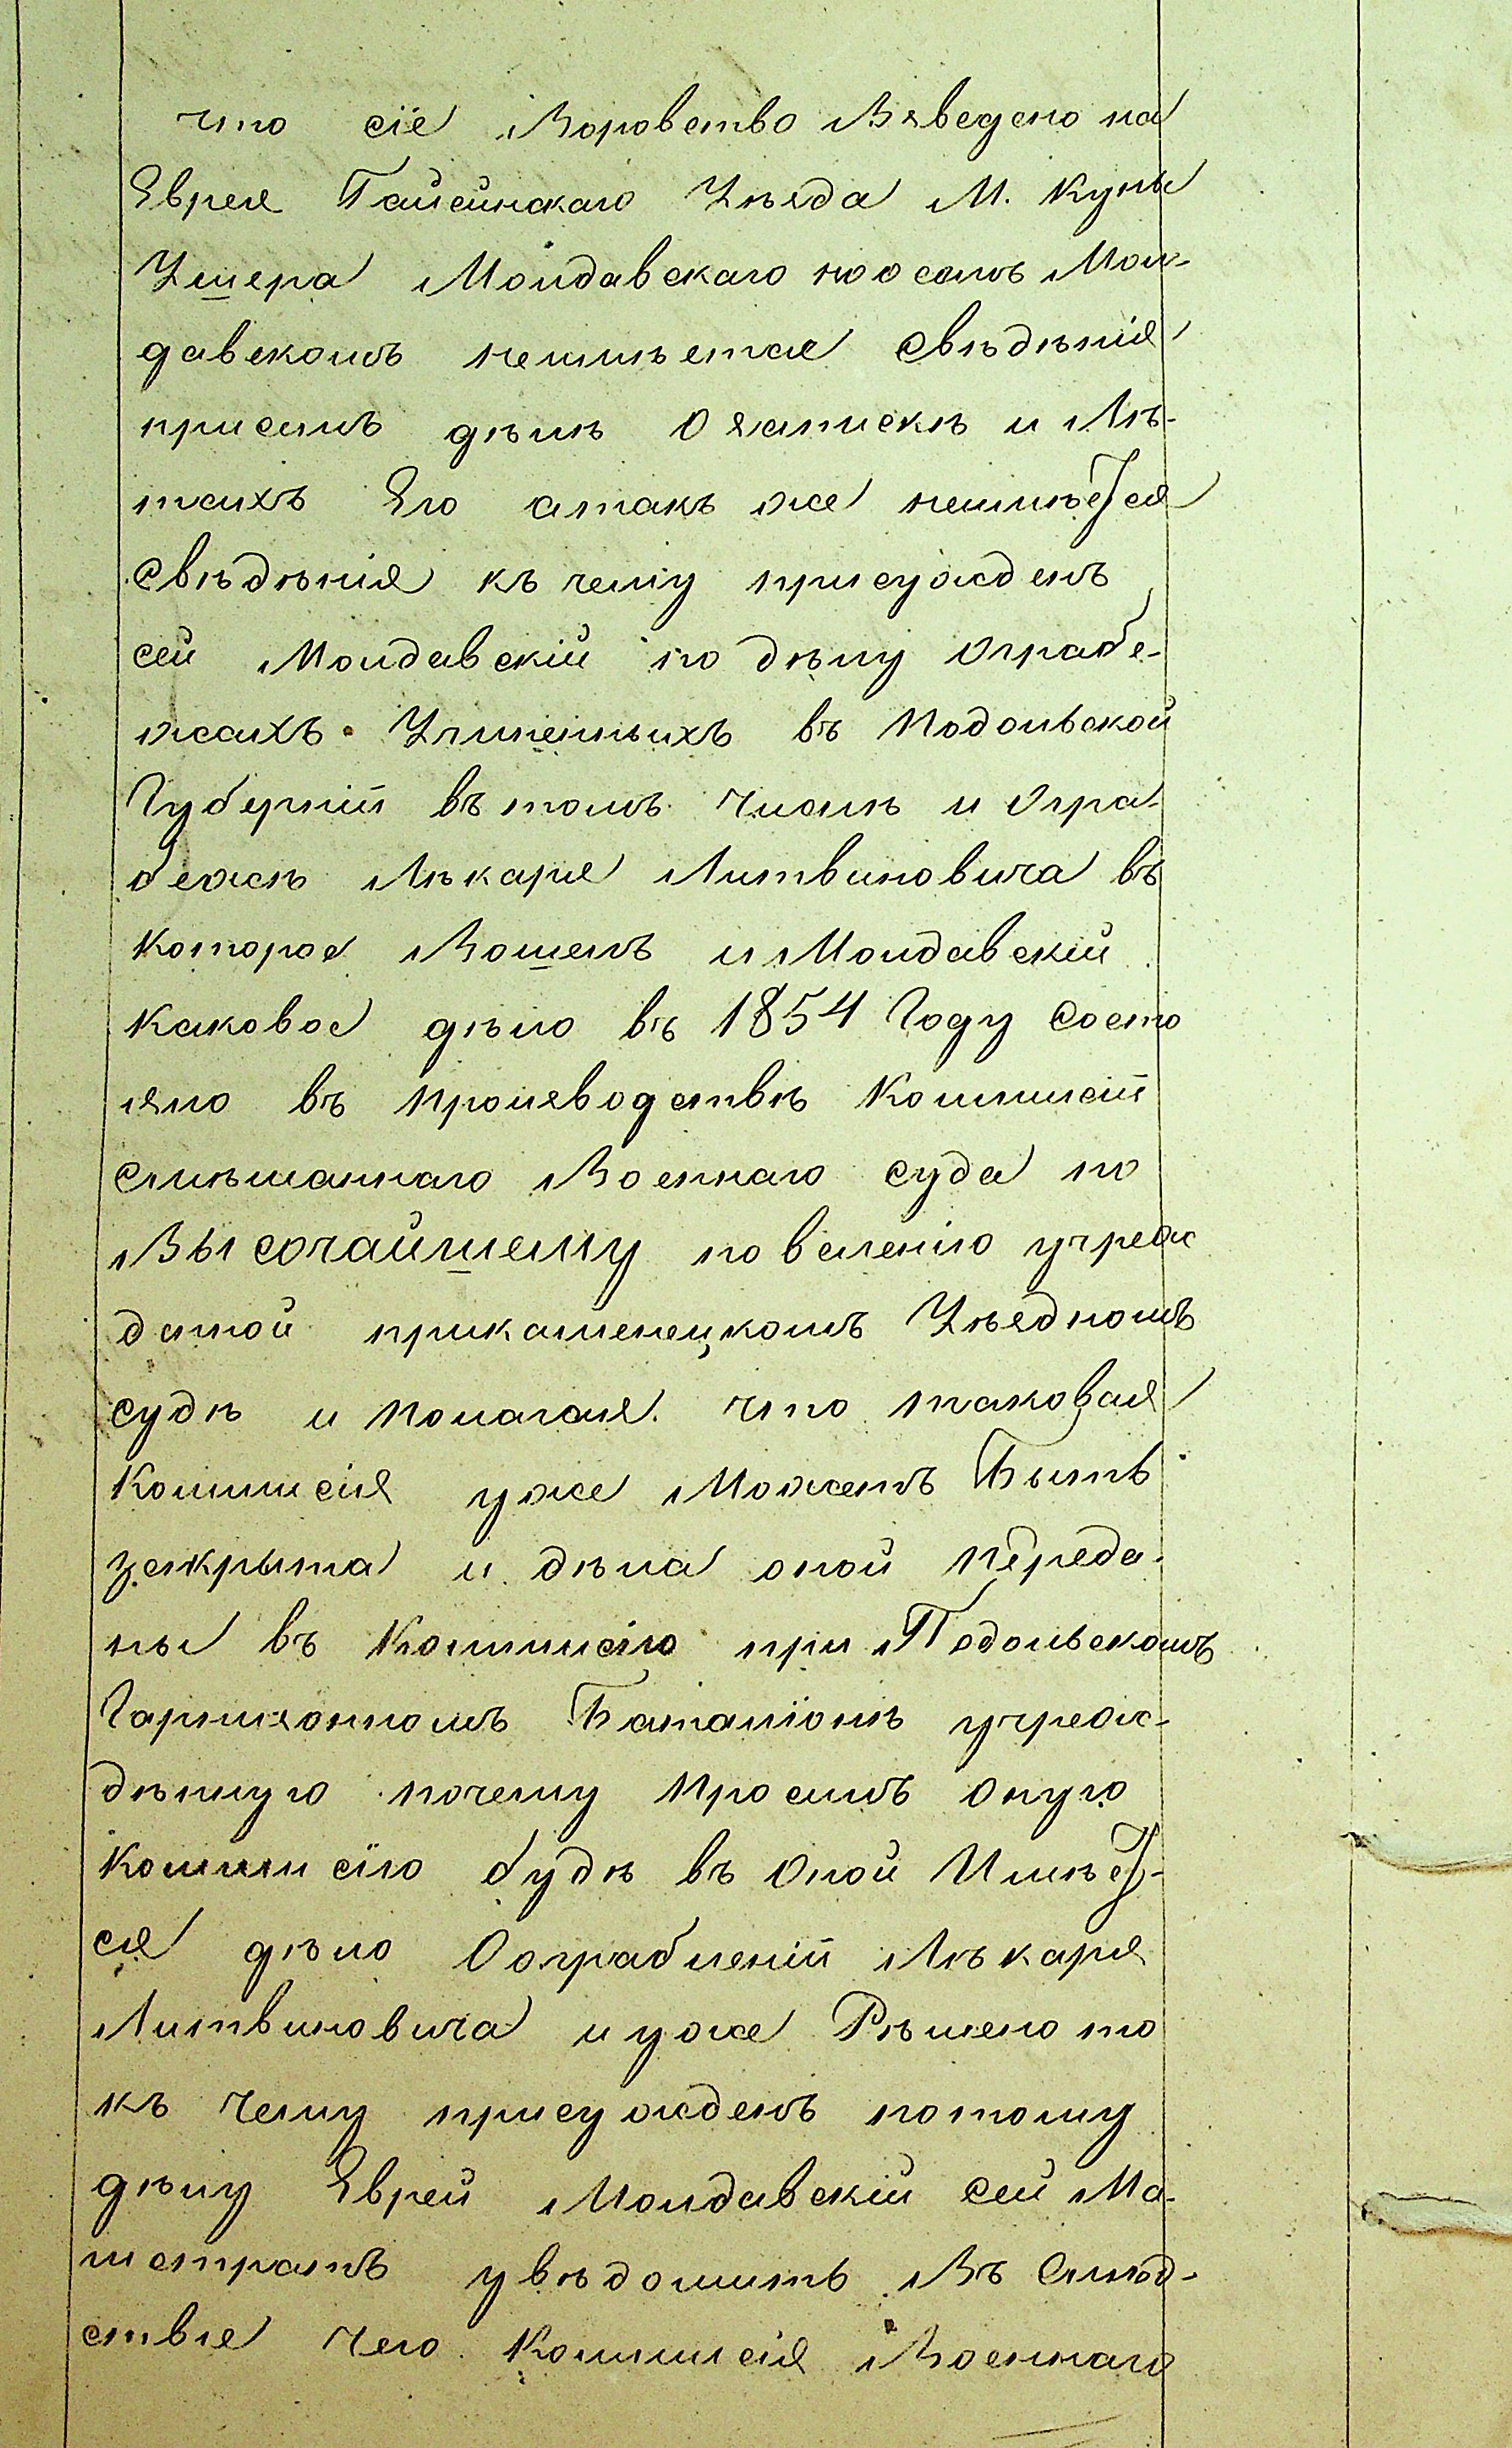 что сіе Воровство Взведено на
Еврея Гайсинскаго Уѣзда М. Куны
Ушера Молдавскаго но о самъ Мол-
давскомъ неимѣетсе свѣдѣнія
присемъ дѣлѣ О запискѣ и Лѣ-
тахъ Его атакъ же неимѣется
свѣдѣнія къ чему присужденъ
сей Молдавскій по дѣлу ограбе-
жахъ Учиненныхъ въ Подольской
Губерніи въ томъ числѣ и огра-
бежѣ Лѣкаря Литвиновича въ
которое Вошелъ и Молдавскій
каковое дѣло въ 1854 Году состо
яло въ производствѣ Коммисіи
смѣшаннаго Военнаго суда по
Высочайшему повелѣнію учреж
даной прикаменецкомъ Уѣздномъ
судѣ и полагая что таковая
Коммисія уже Можетъ Быть
закрыта и дѣла оной переда-
ны въ Коммисію при Подольскомъ
Гарнизонномъ Баталіонѣ учреж-
дѣнную почему просилъ оную
коммисію будѣ въ оной Имѣет-
ся дѣло О ограбленіи Лѣкаря
Литвиновича и уже Рѣшено то
къ чему присужденъ потому
дѣлу Еврей Молдавскій сей Ма-
истратъ увѣдомить Въ Слѣд-
ствіе чего Коммисія Военнаго